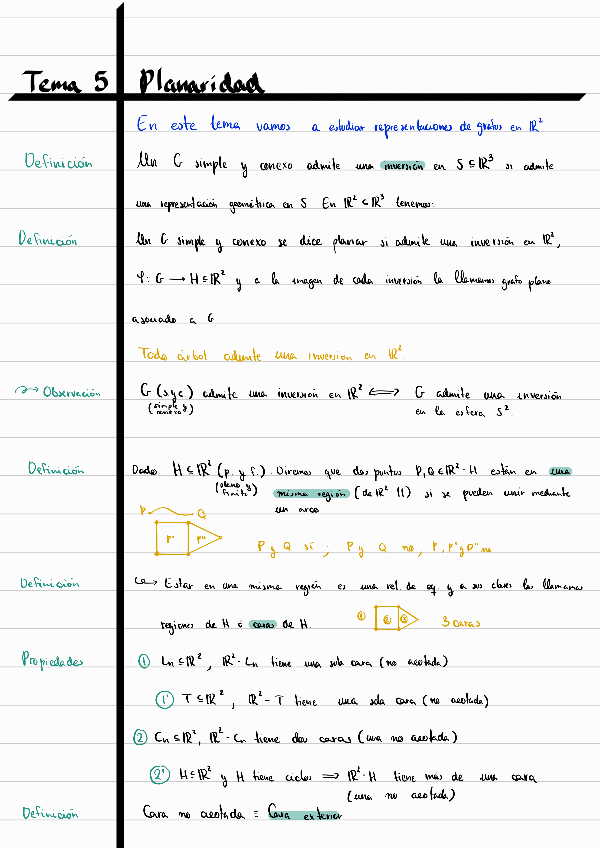 Tema 5 Planaridad
En este tema vamos a estudiar representaciones de grafos en ℝ²
Definición Un G simple y conexo admite una inversión en S ⊆ ℝ³ si admite
una representación geométrica en S. En ℝ² ⊆ ℝ³ tenemos:
Definición Un G simple y conexo se dice planar si admite una inversión en ℝ²,
φ: G → H ⊆ ℝ² y a la imagen de cada inversión la llamamos grafo plano
asociado a G
Todo árbol admite una inversion en ℝ².
Observación G (s.y.c.) admite una inversión en ℝ² ⟺ G admite una inversión
(simple y conexo) en la esfera S²
Definición Dados H ⊆ ℝ² (p. y f.). Diremos que dos puntos P, Q ∈ ℝ² - H están en una
(plano y finito) misma región (de ℝ² \\) si se pueden unir mediante
un arco
P Q
P' P''
P y Q sí ; P y Q no, P, P' y P'' no
Definición ↪ Estar en una misma región es una rel. de eq. y a sus clases las llamamos
regiones de H o caras de H. ① ② ③ 3 caras
Propiedades ① Ln ⊆ ℝ², ℝ² - Ln tiene una sola cara (no acotada)
①' T ⊆ ℝ², ℝ² - T tiene una sola cara (no acotada)
② Cn ⊆ ℝ², ℝ² - Cn tiene dos caras (una no acotada)
②' H ⊆ ℝ² y H tiene ciclos ⟹ ℝ² - H tiene más de una cara
(una no acotada)
Definición Cara no acotada ≡ Cara exterior